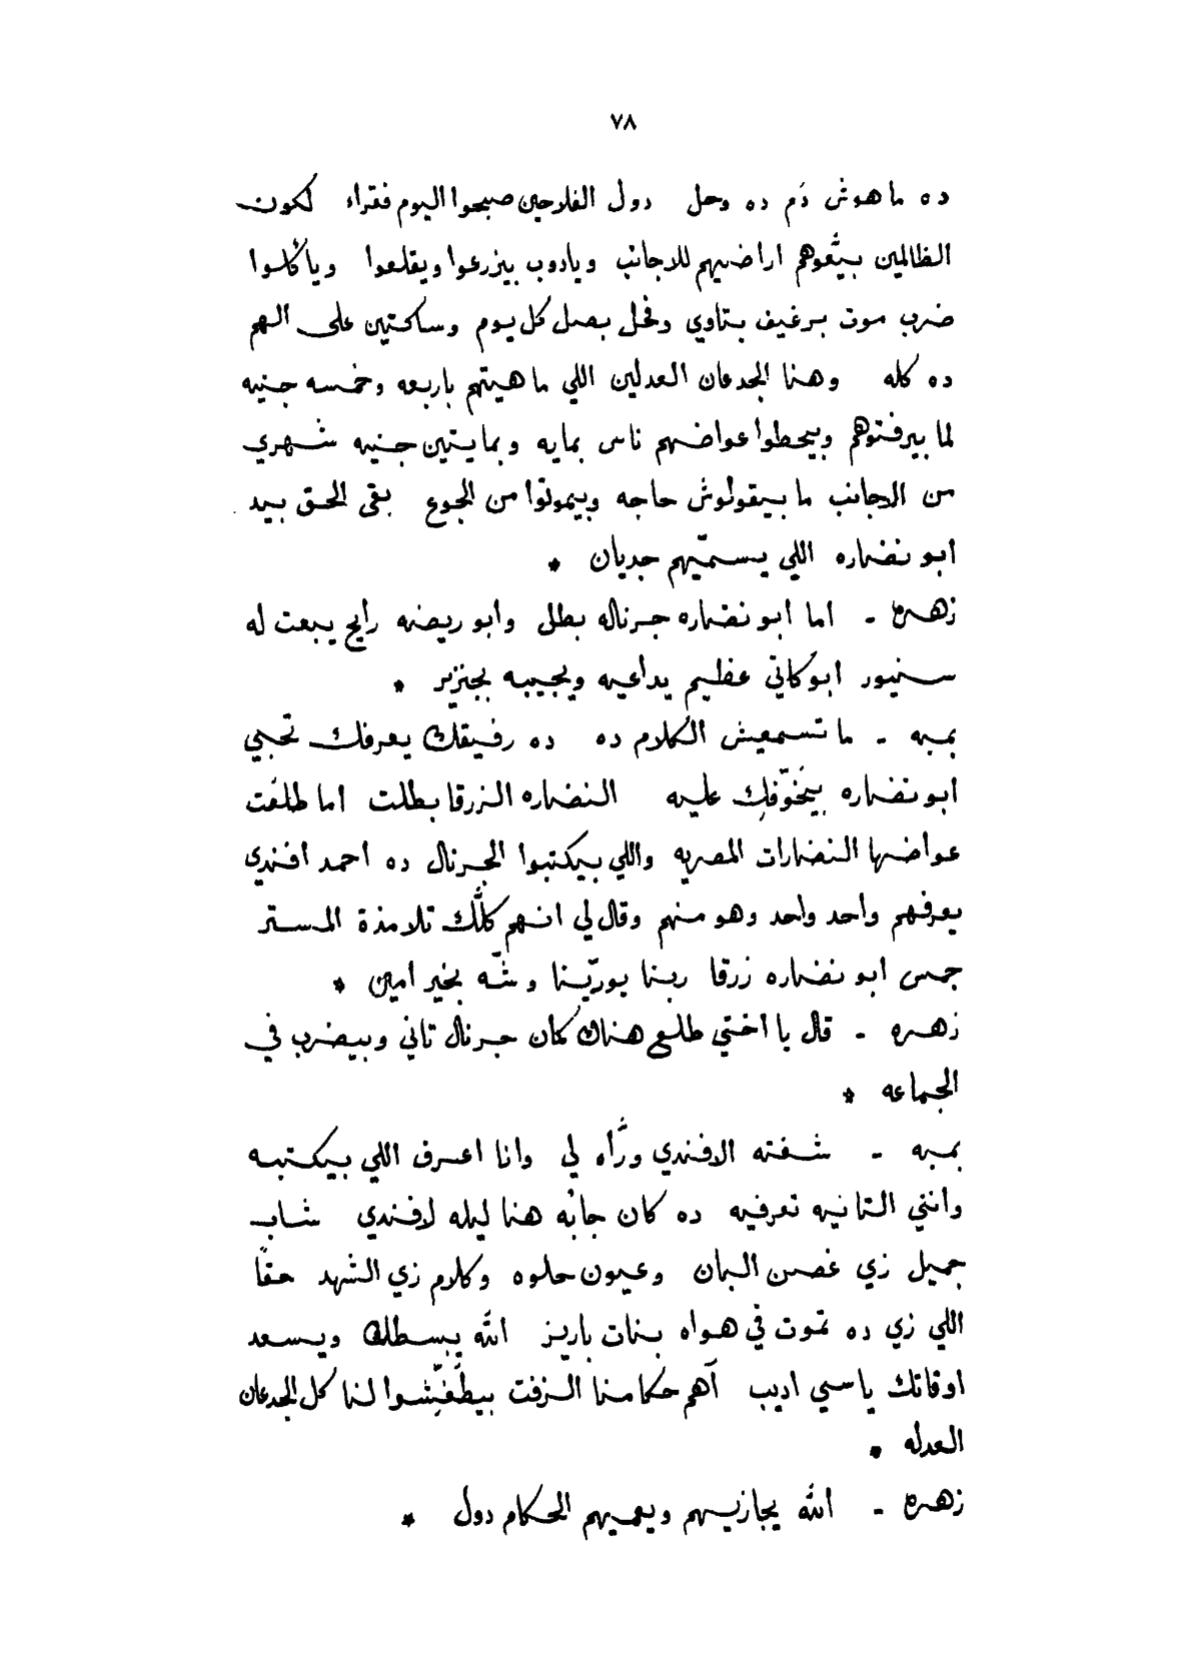 ٧٨
ده ماهوش دَم ده وحل دول الفلاحين صبحوا اليوم فقراء لكون
الظالمين بيبَّعوهم اراضيهم للاجانب ويادوب بيزرعوا ويقلعوا وياكُلوا
ضرب موت برغيف بتاوي وفحل بصل كل يوم وساكتين على الهم
ده كله وهنا الجدعان العدلين اللي ماهيتهم باربعه وخمسه جنيه
لما بيرفتوهم وبيحطوا عواضهم ناس بمايه وبمايتين جنيه شهري
من الاجانب ما بيقولوش حاجه وبيموتوا من الجوع بقى الحق بيد
ابو نضاره اللي يسمّيهم جديان *
زهره - اما ابو نضاره جرناله بطل وابو ريضه رايح يبعت له
سنيور ابوكاتي عظيم يداعيه ويجيبه بجنزير *
بمبه - ما تسمعيش الكلام ده ده رفيقك يعرفك تحبي
ابو نضاره بيخوّفكِ عليه النضاره الزرقا بطلت اما طلعَت
عواضها النضارات المصريه واللي بيكتبوا الجرنال ده احمد افندي
يعرفهم واحد واحد وهو منهم وقال لي انهم كلَّك تلامذة المستر
جمس ابو نضاره زرقا ربنا يورّينا وشّه بخير امين *
زهره - قال يا اختي طلع هناك كمان جرنال تاني وبيضرب في
الجماعه *
بمبه - شفته الافندي ورَّاه لي وانا اعرف اللي بيكتبه
وانتي التانيه تعرفيه ده كان جابُه هنا ليله لافندي شاب
جميل زي غصن البان وعيون حلوه وكلام زي الشهد حقًا
اللي زي ده تموت في هواه بنات باريز الله يبسطك ويسعد
اوقاتك يا سي اديب آهم حكامنا الزفت بيطَفِّشوا لنا كل الجدعان
العدله *
زهره - الله يجازيهم ويعميهم الحكام دول *